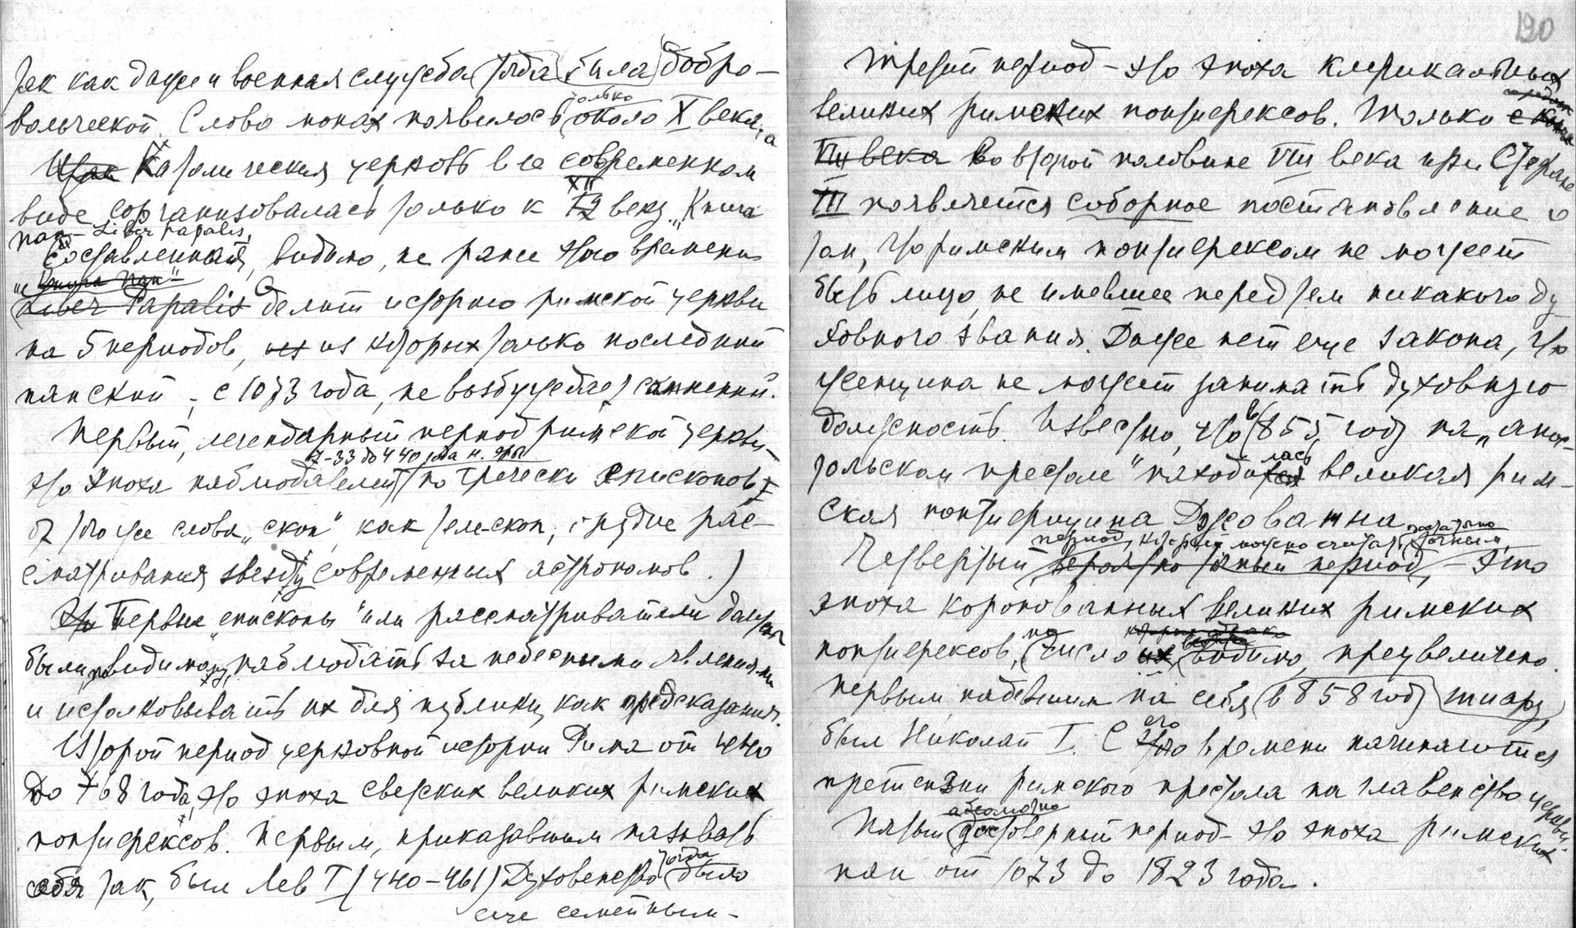 так как даже и военная служба тогда была добро-
вольческой. Слово монах появилось только около X века,
Католическая церковь в ее современном
виде сорганизовалась только к XII веку. „Книга
пап – Liber Papalis,
составленная, видимо, не ранее этого времени
„История пап“
Liber Papalis делит историю римской церкви
на 5 периодов, из которых только последний
папский, с 1073 года, не возбуждает сомнений.
Первый, легендарный период римской церкви,
– 33 до 440 года н. эры
это эпоха наблюдателей (по гречески епископов,
от того же слова „скоп“ как телескоп, орудие рас-
сматривания звезд у современных астрономов.)
Первые „епископы“ или рассматриватели должны
были, по видимому, наблюдать за небесными явлениями
и истолковывать их для публики как предсказания.
Второй период церковной истории Рима от 440
до 768 года, это эпоха светских великих римских
понтифексов. Первым, приказавшим называть
себя так, был Лев I (440–461) Духовенство тогда было
еще семейным –
190
Третий период – это эпоха клерикальных
великих римских понтифексов. Только
VIII века во второй половине VIII века при Стефане
III появляется соборное постановление о
том, что римским понтифексом не может
быть лицо, не имевшее перед тем никакого ду
ховного звания. Даже нет еще закона, что
женщина не может занимать духовную
должность. Известно, что в 855 году на „апос-
тольском престоле“ находилась великая рим-
ская понтифицина Джованна
период, который можно считать достаточно точным,
Четвертый вероятно точный период, – это
эпоха коронованных великих римских
понтифексов, но число их видимо, преувеличено.
Первым надевшим на себя (в 858 году) тиару,
был Николай I. С его времени начинаются
претензии римского престола на главенство церкви.
абсолютно
Пятый достоверный период – это эпоха римских
пап от 1073 до 1823 года.